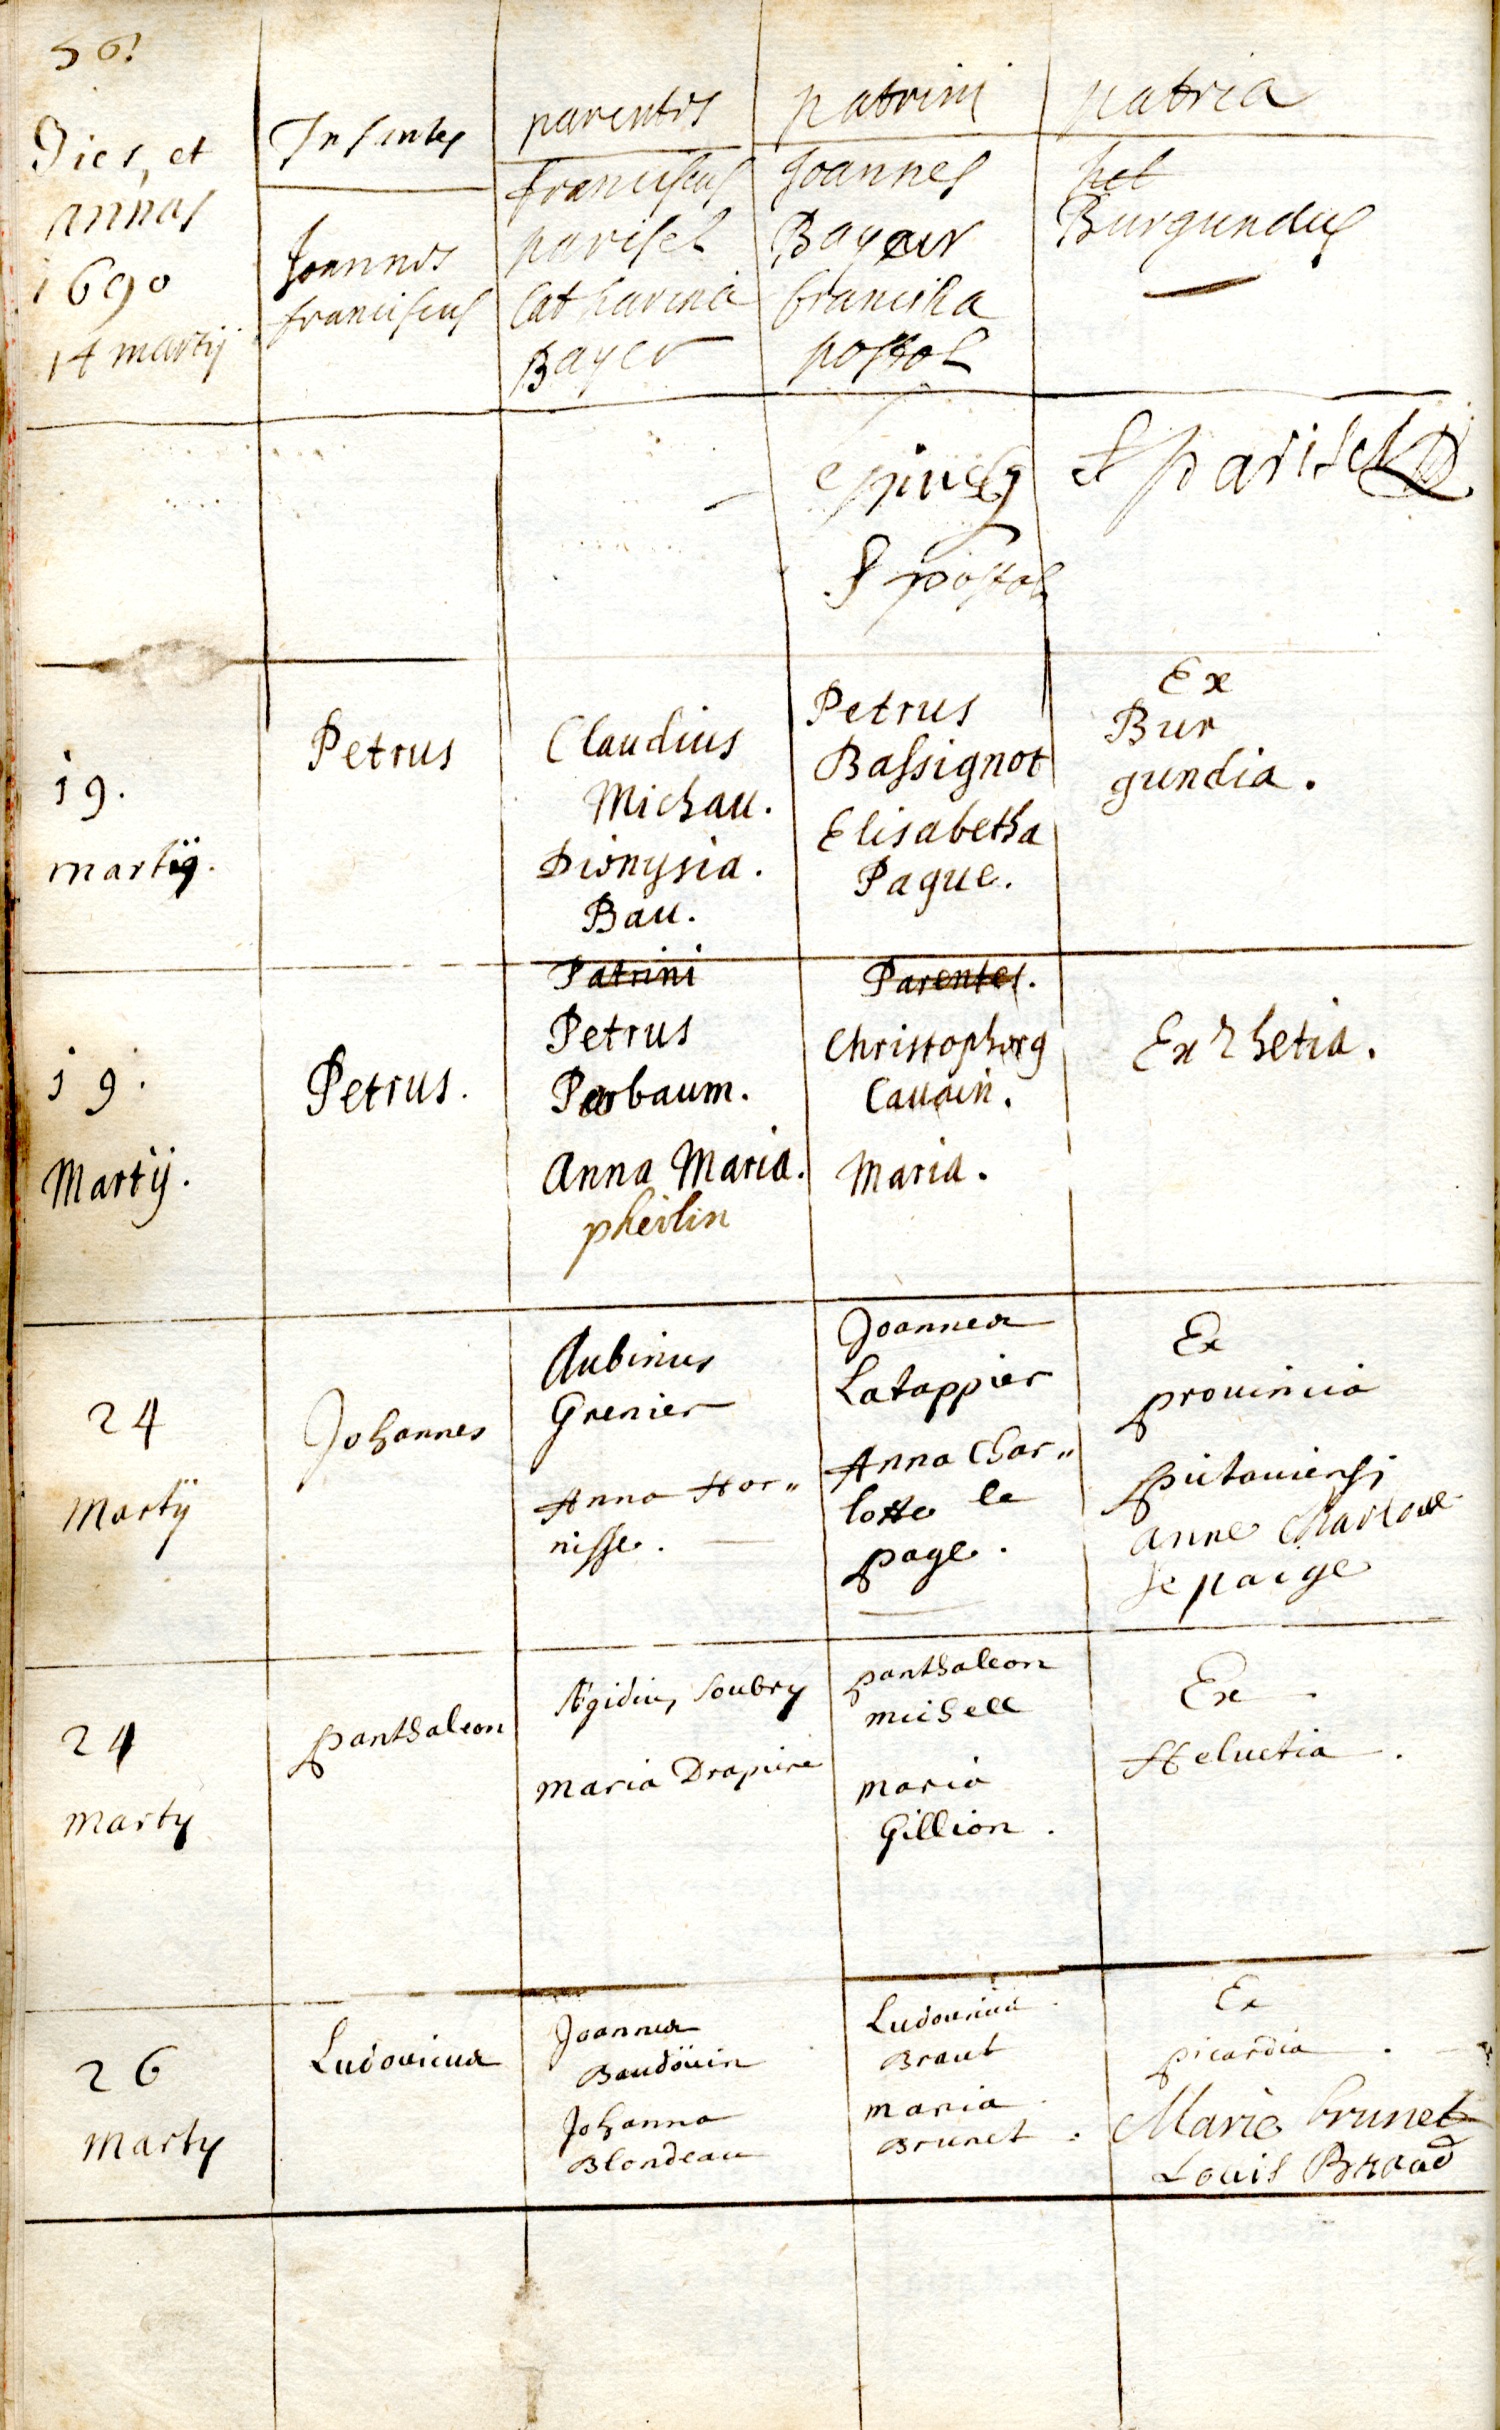 56!
Dies, et
annus
1690
14 martij
Infantes
Joannes
franciscus
parentes
franciscus
parisel
Catharina
Bayer
patrini
Joannes
Bayeur
francisca
postol
patria
Burgundus
F parisel
F postol
19.
martij.
Petrus
Claudius
Michau.
Dionysia.
Bau.
Petrus
Bassignot
Elisabetha
Pague.
Ex
Bur
gundia.
19.
Martij.
Petrus.
Patrini
Petrus
baum.
Anna Maria.
pheilin
Parentes.
Christophorg
Cauain.
Maria.
Ex Rhetia.
24
Martij
Johannes
Aubinus
Grenier
Anna Hor"
nisse.
Joannes
Latappier
Anna Char"
lotte le
page.
Ex
prouincia
pictauiensi
anne Charlotte
le paige
24
Martij
panthaleon
Ægidiu, Soubry
Maria Drapiere
panthaleon
michell
maria
Gillion.
Ex
Heluetia.
26
Martij
Ludouicus
Joannes
Baudöuin
Johanna
Blondeau
Ludouicus
Braut
maria
Brunet.
Ex
picardia.
Marie brunet
Louis Braud